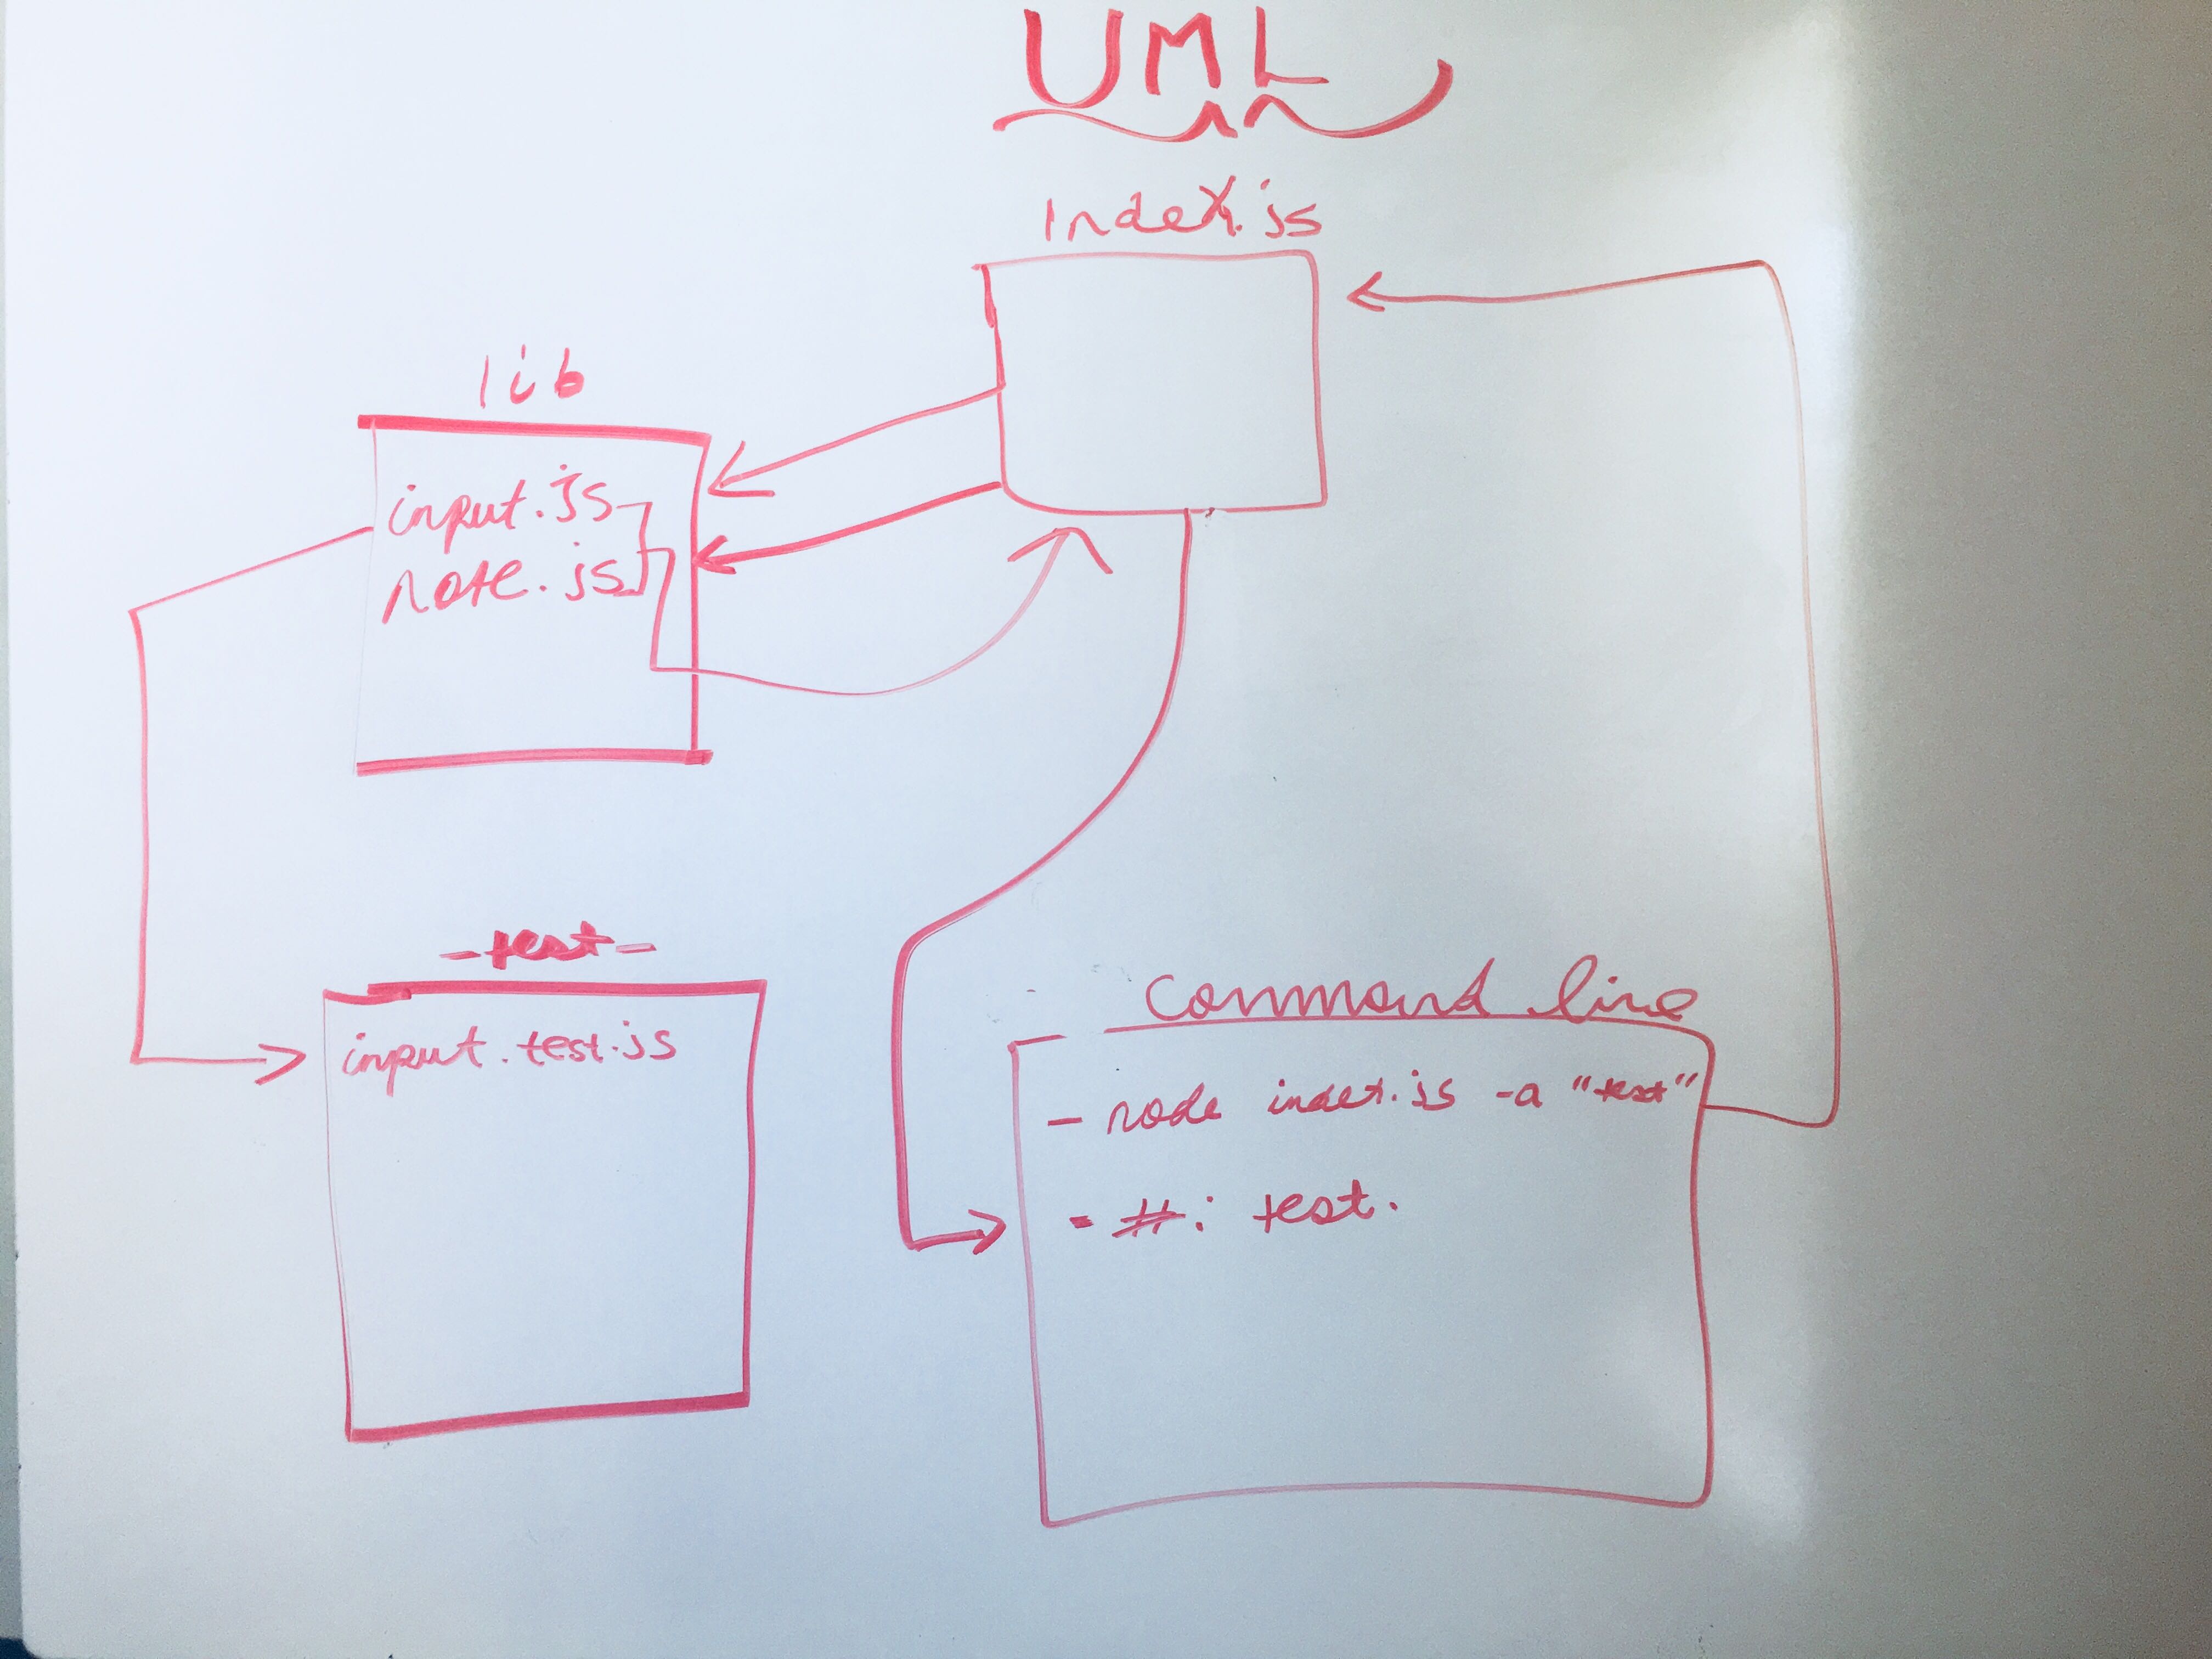 UML
Index.js
lib
input.js
note.js
-test-
input.test.js
Command line
- node index.js -a "test"
- #: test.